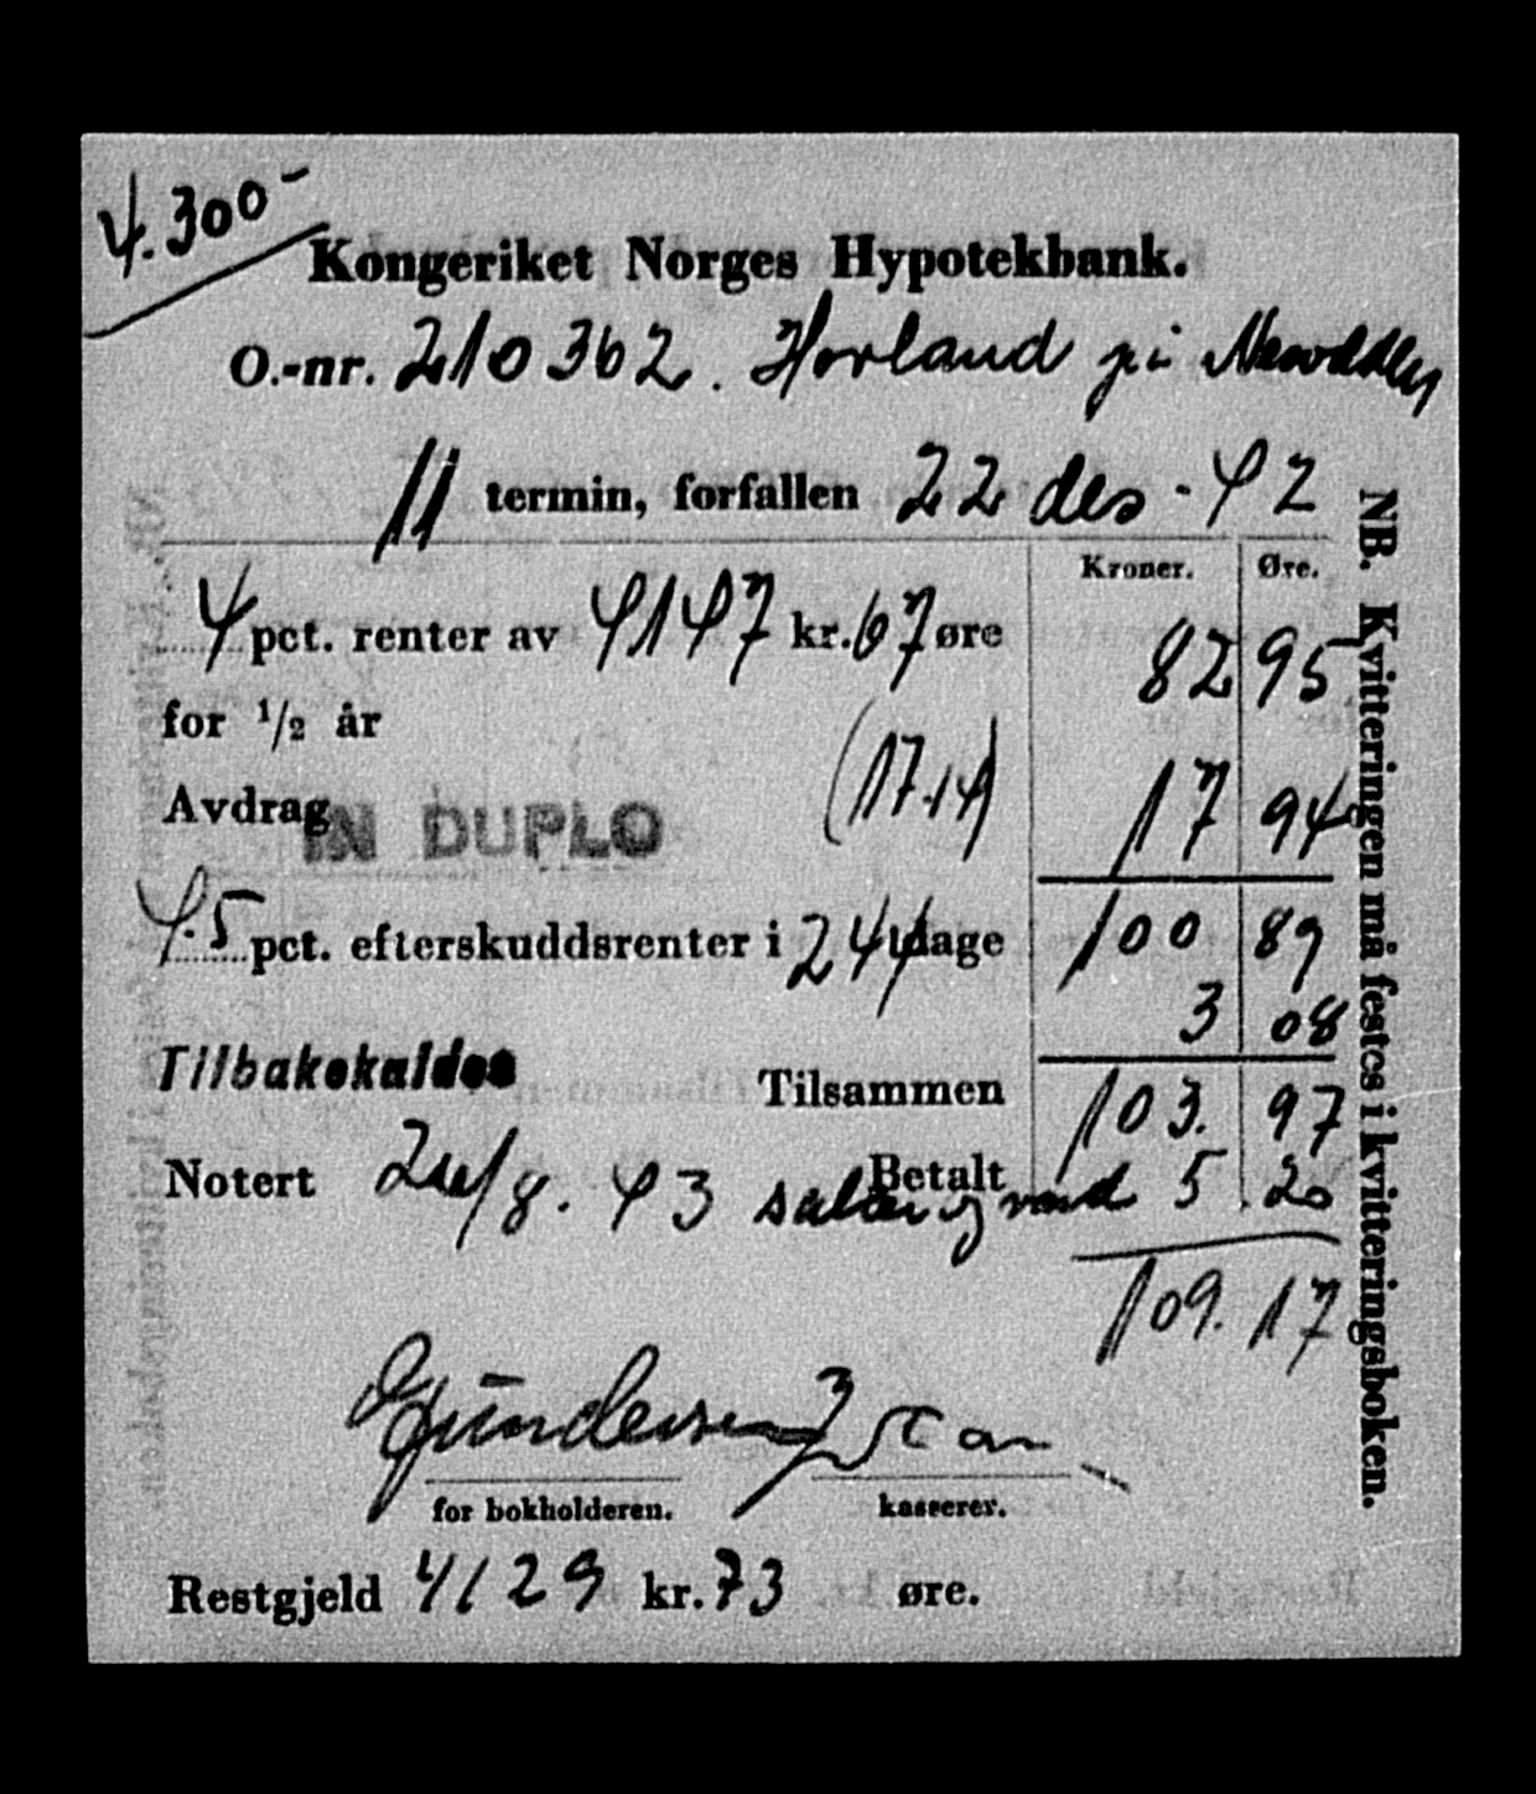 4.300-
Kongeriket Norges Hypotekbank.
O.-nr. 210362. Hovland på
11 termin, forfallen 22 des - 42
Kroner. Øre.
4 pct. renter av 4147 kr. 67 øre 82 95
for 1/2 år
Avdrag (17.14) 17 94
IN DUPLO
4.5 pct. efterskuddsrenter i 244 dage 100 89
3 08
Tilbakekaldes Tilsammen 103. 97
Notert 24/8. 43 Betalt
salær og 5.20
109.17
Gundersen
for bokholderen. kasserer.
Restgjeld 4129 kr. 73 øre.
NB. Kvitteringen må festes i kvitteringsboken.